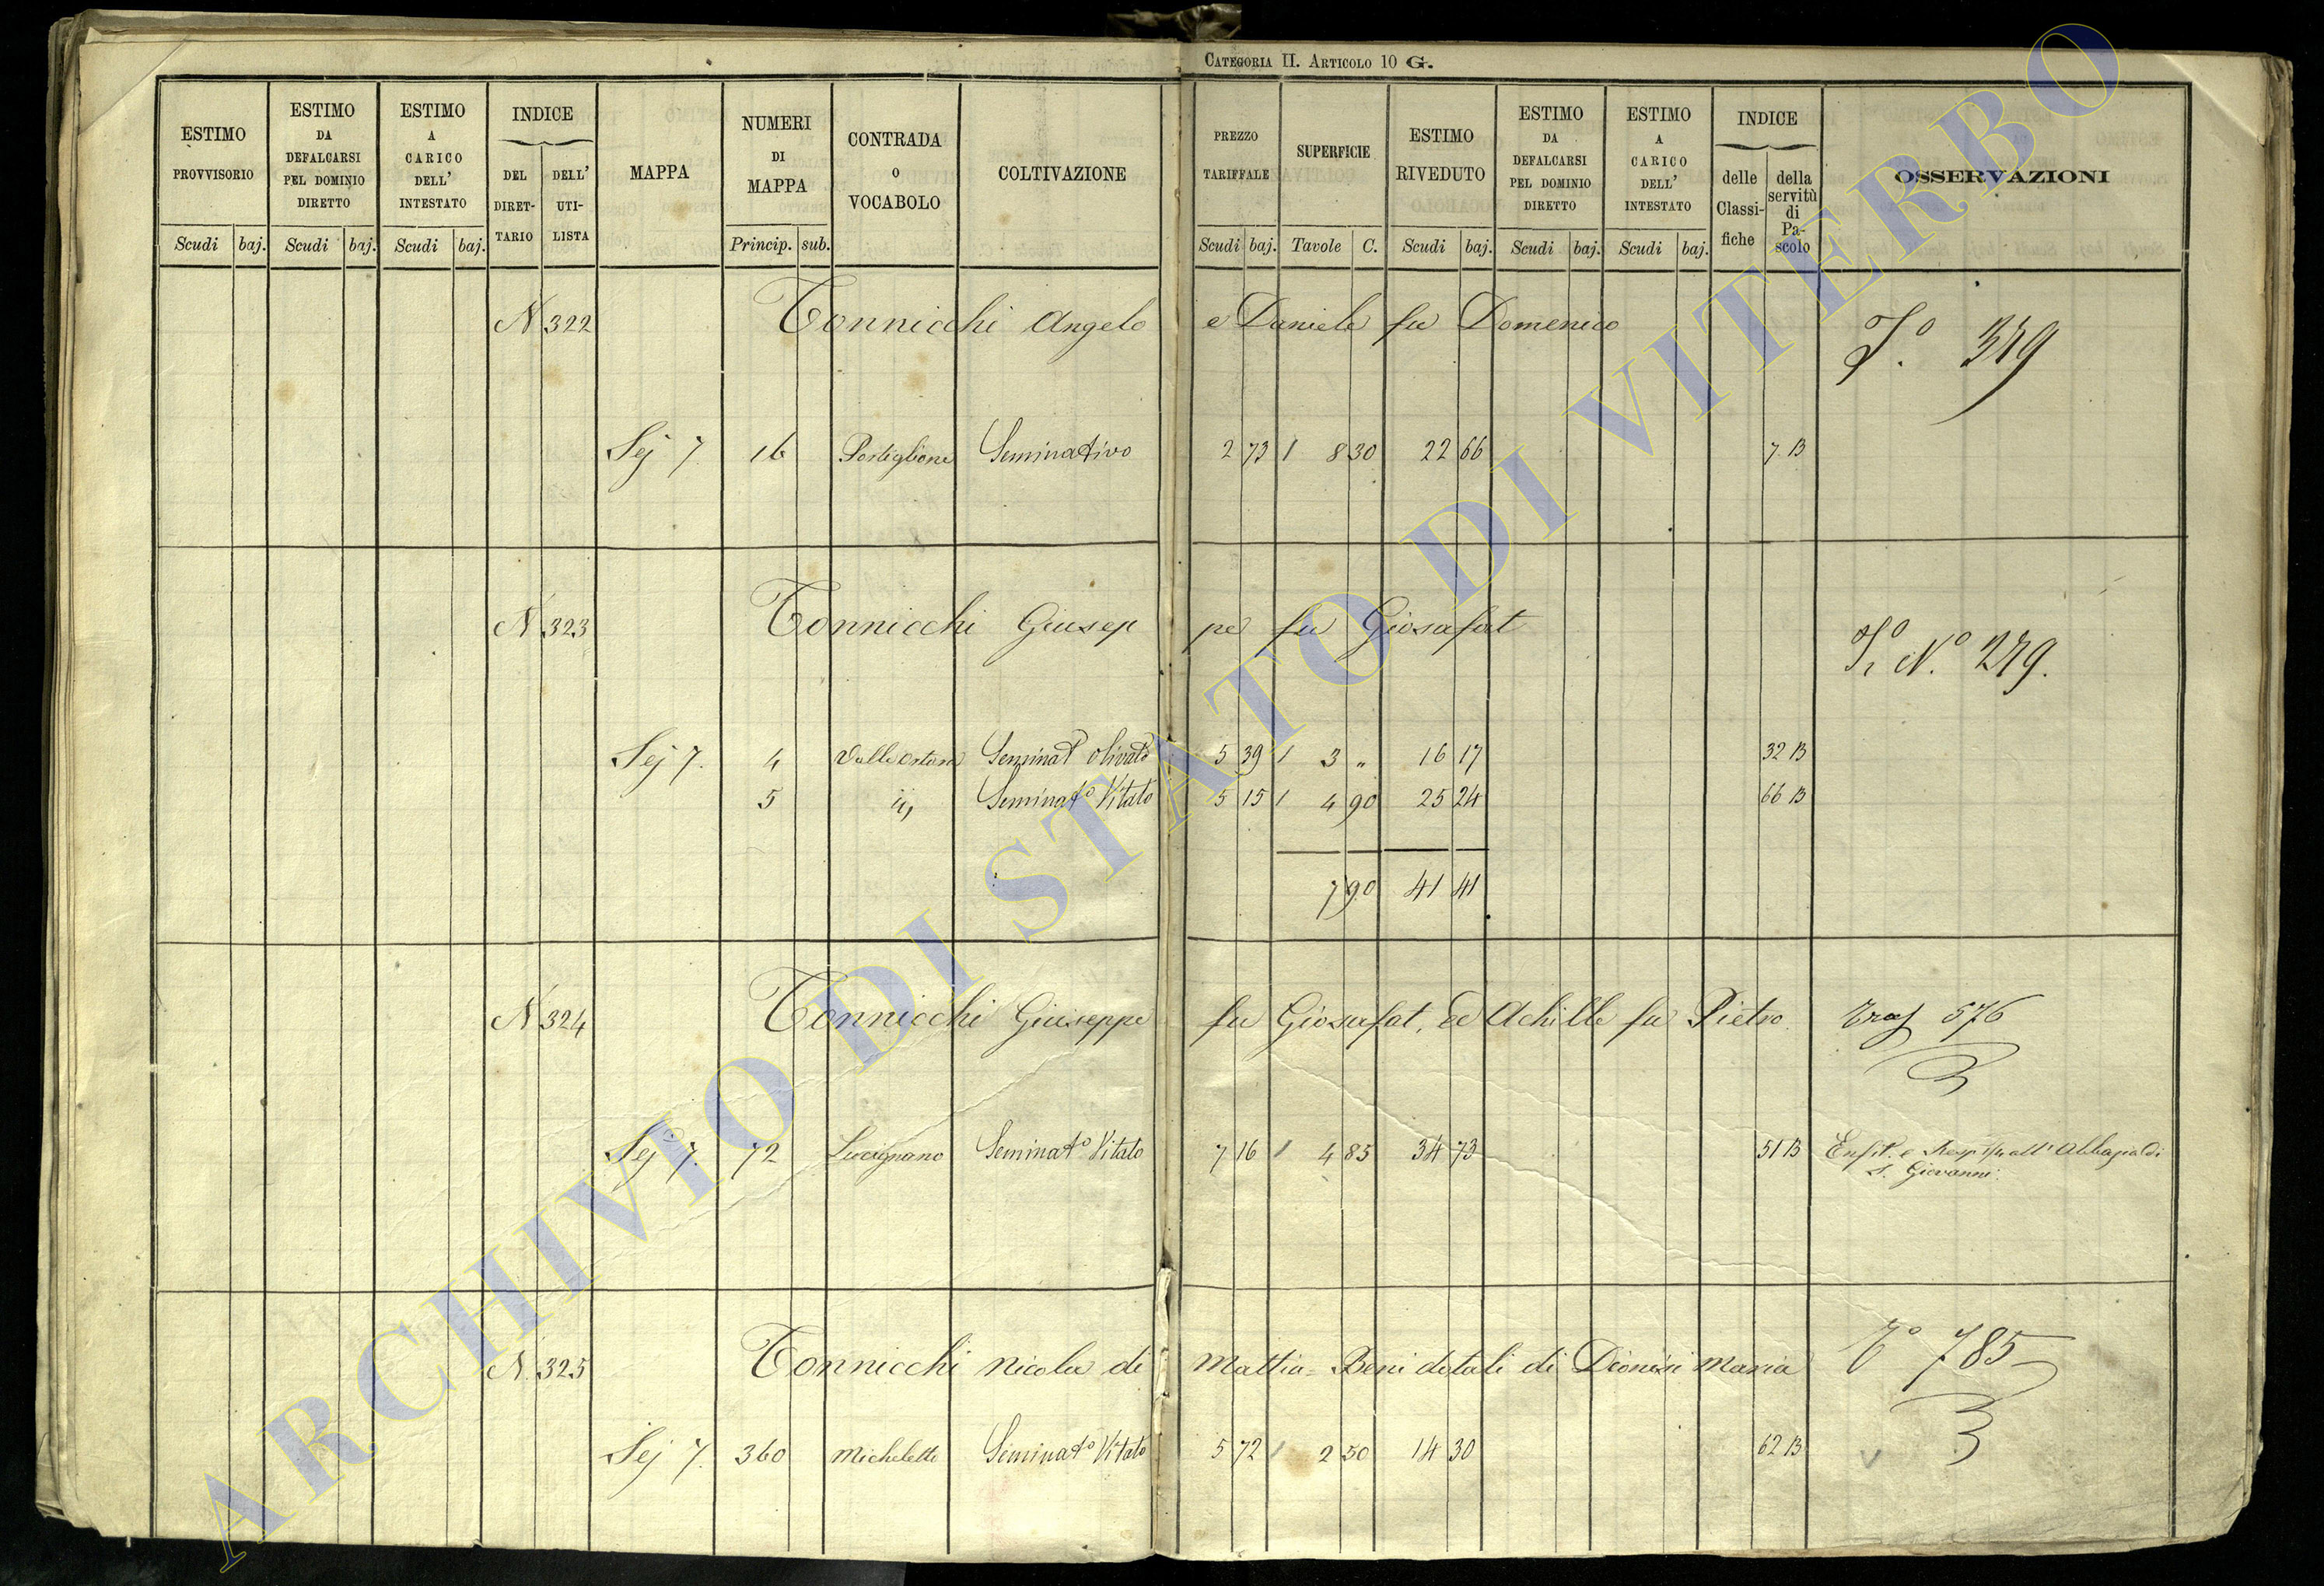 CATEGORIA II. ARTICOLO 10 G.
ESTIMO PROVVISORIO
Scudi baj.
ESTIMO DA DEFALCARSI PEL DOMINIO DIRETTO
Scudi baj.
ESTIMO A CARICO DELL' INTESTATO
Scudi baj.
INDICE
DEL DIRET- TARIO
DELL' UTI- LISTA
MAPPA
NUMERI DI MAPPA
Princip. sub.
CONTRADA O VOCABOLO
COLTIVAZIONE
PREZZO TARIFFALE
Scudi baj.
SUPERFICIE
Tavole C.
ESTIMO RIVEDUTO
Scudi baj.
ESTIMO DA DEFALCARSI PEL DOMINIO DIRETTO
Scudi baj.
ESTIMO A CARICO DELL' INTESTATO
Scudi baj.
INDICE
delle Classi- fiche
della servitù di Pa- scolo
OSSERVAZIONI
N 322 Tonnicchi Angelo e Daniele fu Domenico
Sej 7. 16 Postiglione Seminativo 2 73 8 30 22 66 7. B
N 323 Tonnicchi Giusep pe fu Giosafat
Sej 7. 4 Seminat° Olivato 5 39 3 " 16 17 32 B
5 ij, Seminat° Vitato 5 15 4 90 25 24 66 B
7 90 41 41
N 324 Tonnicchi Giuseppe fu Giosafat, ed Achille fu Pietro 576
Sej 7. 72 Lucignano Seminat° Vitato 7 16 4 85 34 73 51 B all' Abbazia di
S. Giovanni
N. 325 Tonnicchi Nicola di Mattia = Beni dotali di Dionisi Maria 785
Sej 7. 360 Micheletto Seminat° Vitato 5 72 2 50 14 30 62 B
ARCHIVIO DI STATO DI VITERBO